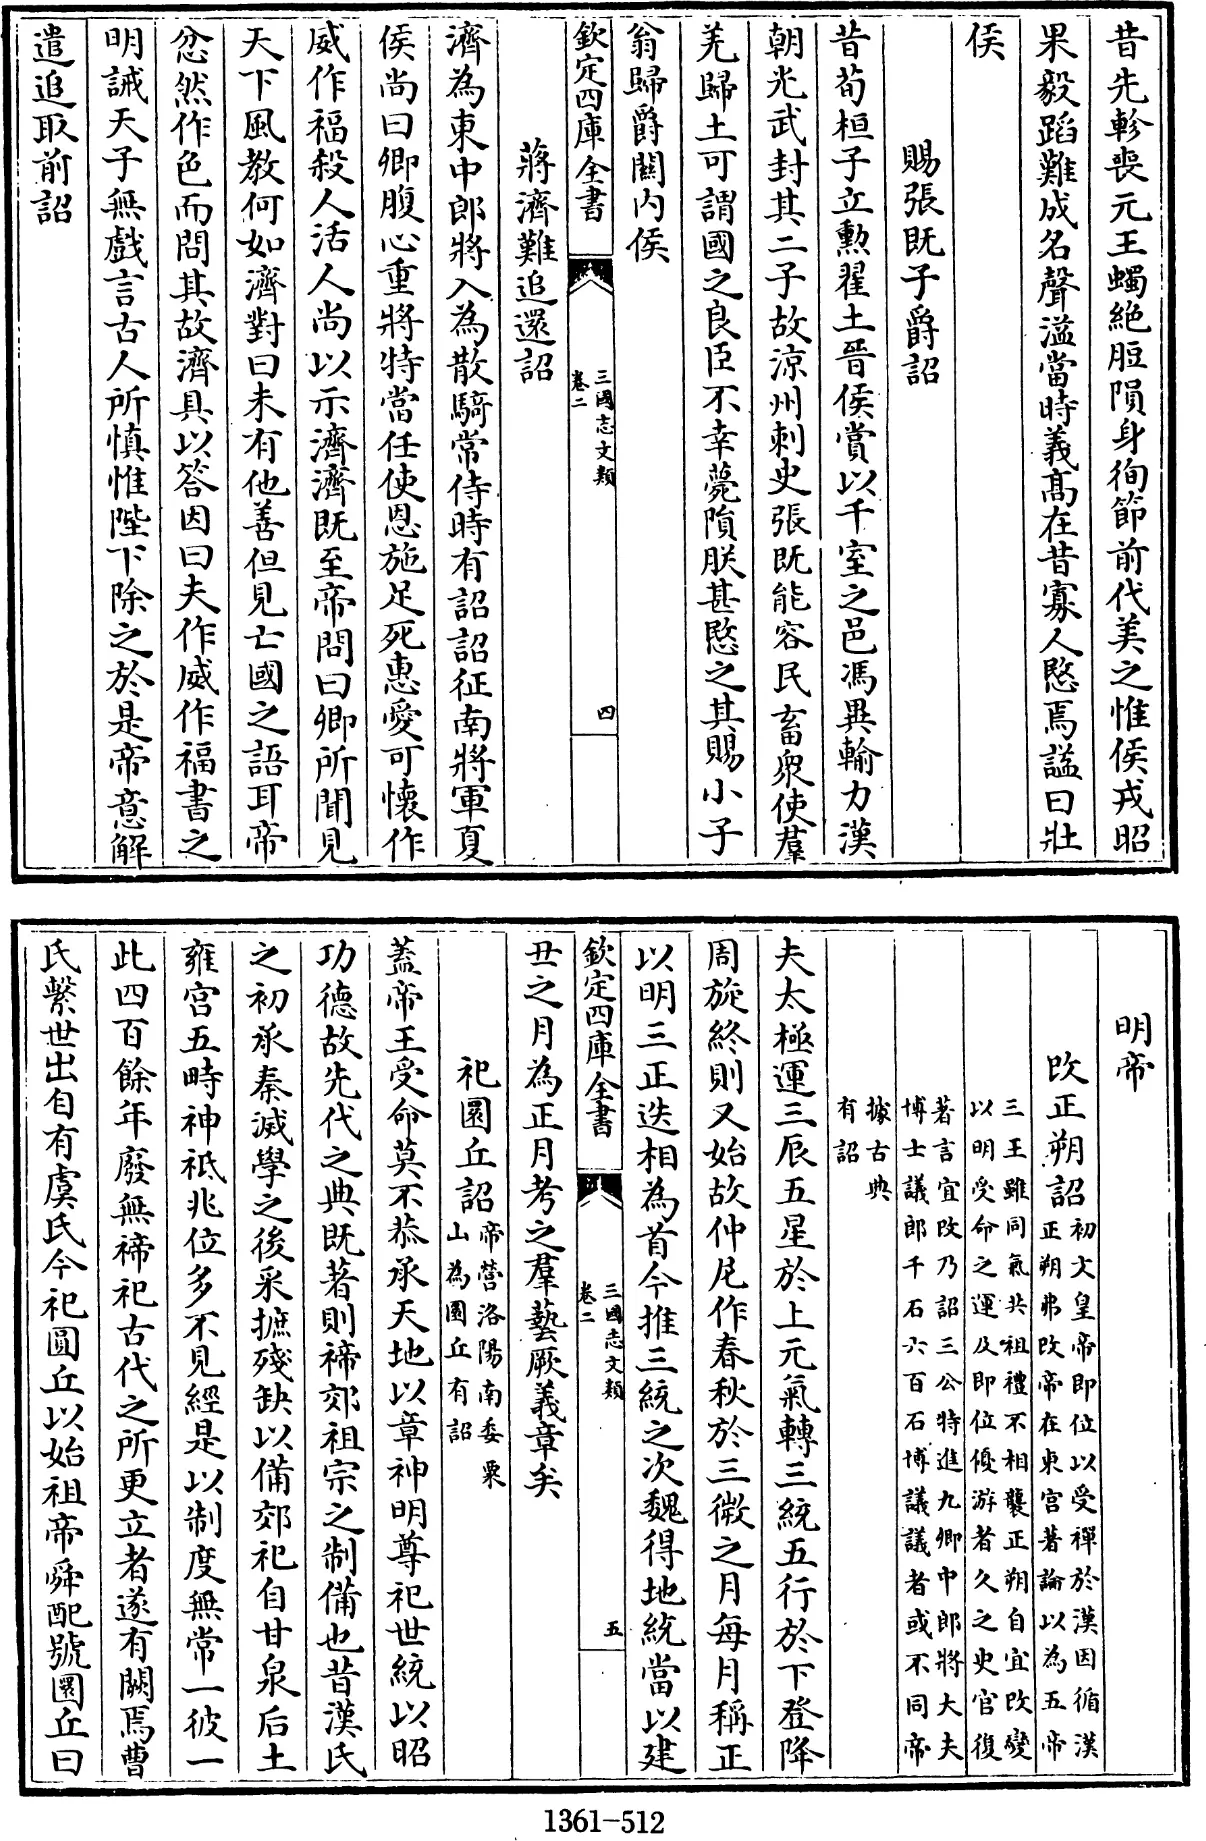 昔先軫喪元王蠋絶脰隕身徇節前代美之惟侯戎昭
果毅蹈難成名聲溢當時義髙在昔寡人愍焉諡曰壯
侯
賜張既子爵詔
昔荀桓子立勲翟土晉侯賞以千室之邑馮異輸力漢
朝光武封其二子故涼州刺史張既能容民畜衆使羣
羌歸土可謂國之良臣不幸薨隕朕甚愍之其賜小子
翁歸爵闗内侯
欽定四庫全書
三國志文類
卷二
四
蔣濟難追還詔
濟為東中郎將入為散騎常侍時有詔詔征南將軍夏
侯尚曰卿腹心重將特當任使恩施足死惠愛可懷作
威作福殺人活人尚以示濟濟既至帝問曰卿所聞見
天下風教何如濟對曰未有他善但見亡國之語耳帝
忿然作色而問其故濟具以答因曰夫作威作福書之
明誡天子無戲言古人所慎惟陛下除之於是帝意解
遣追取前詔
明帝
改正朔詔
初文皇帝即位以受禪於漢因循漢
正朔弗改帝在東宫著論以為五帝
三王雖同氣共祖禮不相襲正朔自宜改變
以明受命之運及即位優游者久之史官復
著言宜改乃詔三公特進九卿中郎將大夫
博士議郎千石六百石博議議者或不同帝
據古典
有詔
夫太極運三辰五星於上元氣轉三統五行於下登降
周旋終則又始故仲尼作春秋於三微之月每月稱正
以明三正迭相為首今推三統之次魏得地統當以建
欽定四庫全書
三國志文類
卷二
五
丑之月為正月考之羣藝厥義章矣
祀圜丘詔
帝營洛陽南委粟
山為圜丘有詔
蓋帝王受命莫不恭承天地以章神明尊祀世統以昭
功德故先代之典既著則禘郊祖宗之制備也昔漢氏
之初承秦滅學之後采摭殘缺以備郊祀自甘泉后土
雍宫五畤神祇兆位多不見經是以制度無常一彼一
此四百餘年廢無禘祀古代之所更立者遂有闕焉曹
氏繫世出自有虞氏今祀圓丘以始祖帝舜配號圜丘曰
1361-512